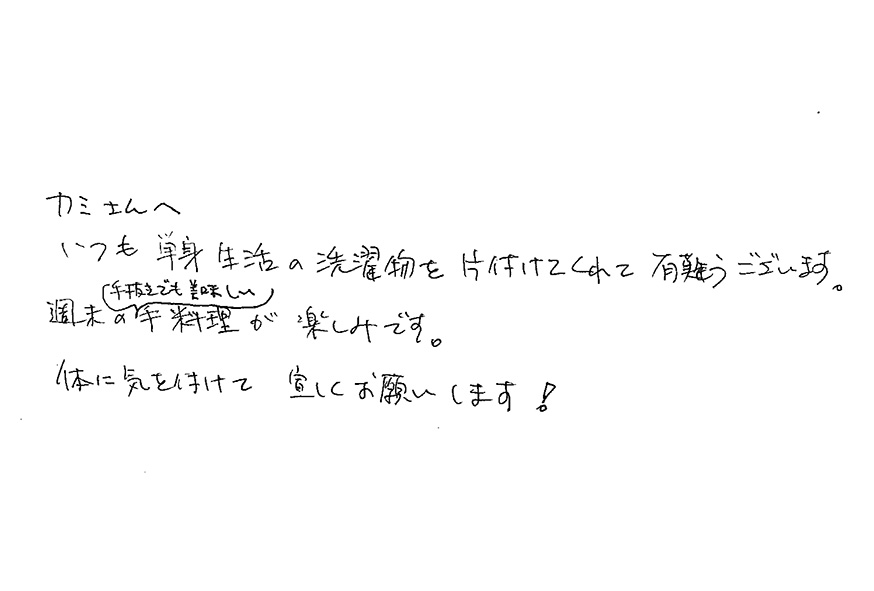 カミさんへ
いつも 単身生活の洗濯物を片付けてくれて 有難うございます。
手抜きでも美味しい
週末の手料理が楽しみです。
体に気を付けて 宜しくお願いします!